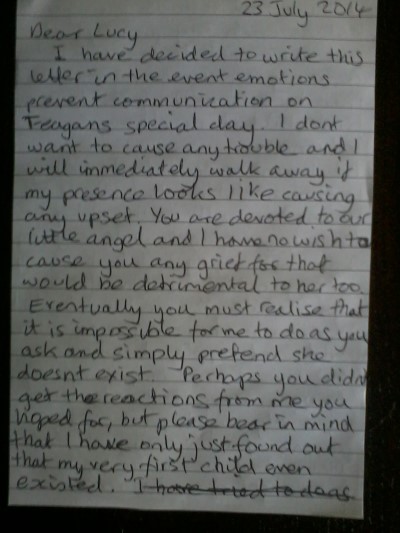 23 July 2014
Dear Lucy
I have decided to write this
letter in the event emotions
prevent communication on
Teagans special day. I dont
want to cause any trouble and I
will immediately walk away if
my presence looks like causing
any upset. You are devoted to our
little angel and I have no wish to
cause you any grief for that
would be detrimental to her too.
Eventually you must realise that
it is impossible for me to do as you
ask and simply pretend she
doesnt exist. Perhaps you didn
get the reactions from me you
hoped for, but please bear in mind
that I have only just found out
that my very first child even
existed. I have tried to do as